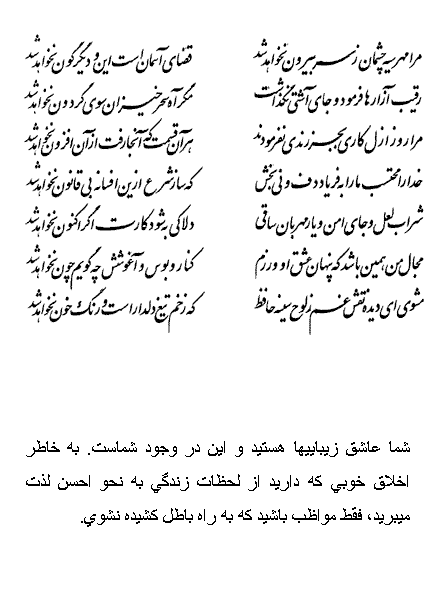 مرا مهر سیه چشمان ز سر بیرون نخواهد شد قضای آسمان است این و دیگرگون نخواهد شد
رقیب آزارها فرمود و جای آشتی نگذاشت مگر آه سحرخیزان سوی گردون نخواهد شد
مرا روز ازل کاری بجز رندی نفرمودند هر آن قسمت که آنجا رفت از آن افزون نخواهد شد
خدا را محتسب ما را به فریاد دف و نی بخش که ساز شرع از این افسانه بی قانون نخواهد شد
شراب لعل و جای امن و یار مهربان ساقی دلا کی به شود کارت اگر اکنون نخواهد شد
مجال من همین باشد که پنهان عشق او ورزم کنار و بوس و آغوشش چه گویم چون نخواهد شد
مشوی ای دیده نقش غم ز لوح سینه حافظ که زخم تیغ دلدار است و رنگ خون نخواهد شد
شما عاشق زیباییها هستید و این در وجود شماست. به خاطر
اخلاق خوبي که دارید از لحظات زندگي به نحو احسن لذت
میبرید، فقط مواظب باشید که به راه باطل کشیده نشوي.